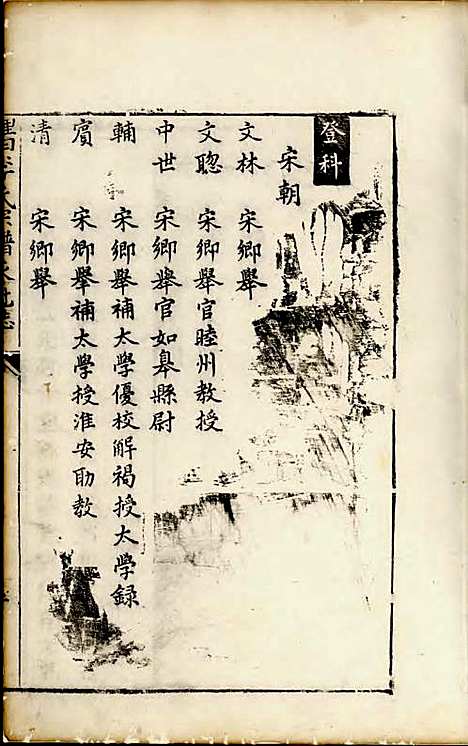 登科
宋朝
文林 宋鄉舉
文聰 宋鄉舉官睦州教授
中世 宋鄉舉官如臯縣尉
輔 宋鄉舉補太學優校解褐授太學録
賔 宋鄉舉補太學授淮安助教
清 宋鄉舉
李氏宗譜